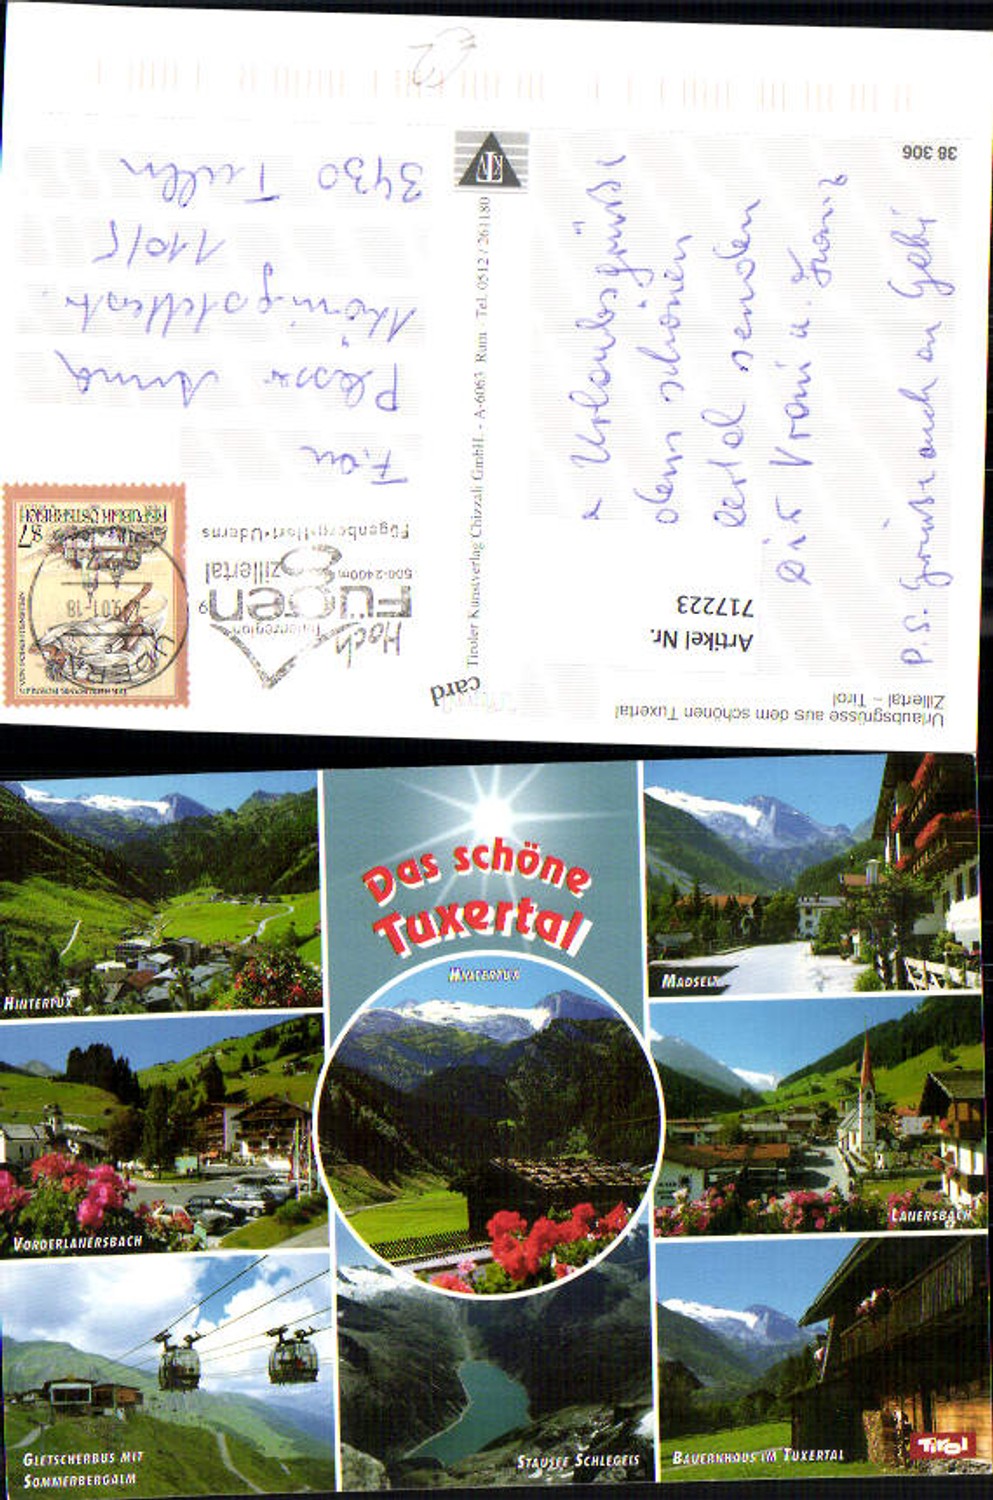 38 306
Urlaubsgrüße
dem schönen
senden
Vroni u. Franz
P.S. Grüße auch an Gabi
Artikel Nr.
717223
Urlaubsgrüsse aus dem schönen Tuxertal
Zillertal – Tirol
KTV
Tiroler Kunstverlag Chizzali GmbH. - A-6063 Rum - Tel. 0512 / 261180
card
Frau
Anna
110/5
3430 Tulln
REPUBLIK ÖSTERREICH
87
9.01-18
Hoch
Ferienregion
FÜGEN
500-2400m Zillertal
Fügenberg•Hart•Uderns
Das schöne
Tuxertal
HINTERTUX
HINTERTUX
MADSEIT
VORDERLANERSBACH
LANERSBACH
GLETSCHERBUS MIT
SOMMERBERGALM
STAUSEE SCHLEGEIS
BAUERNHAUS IM TUXERTAL
Tirol